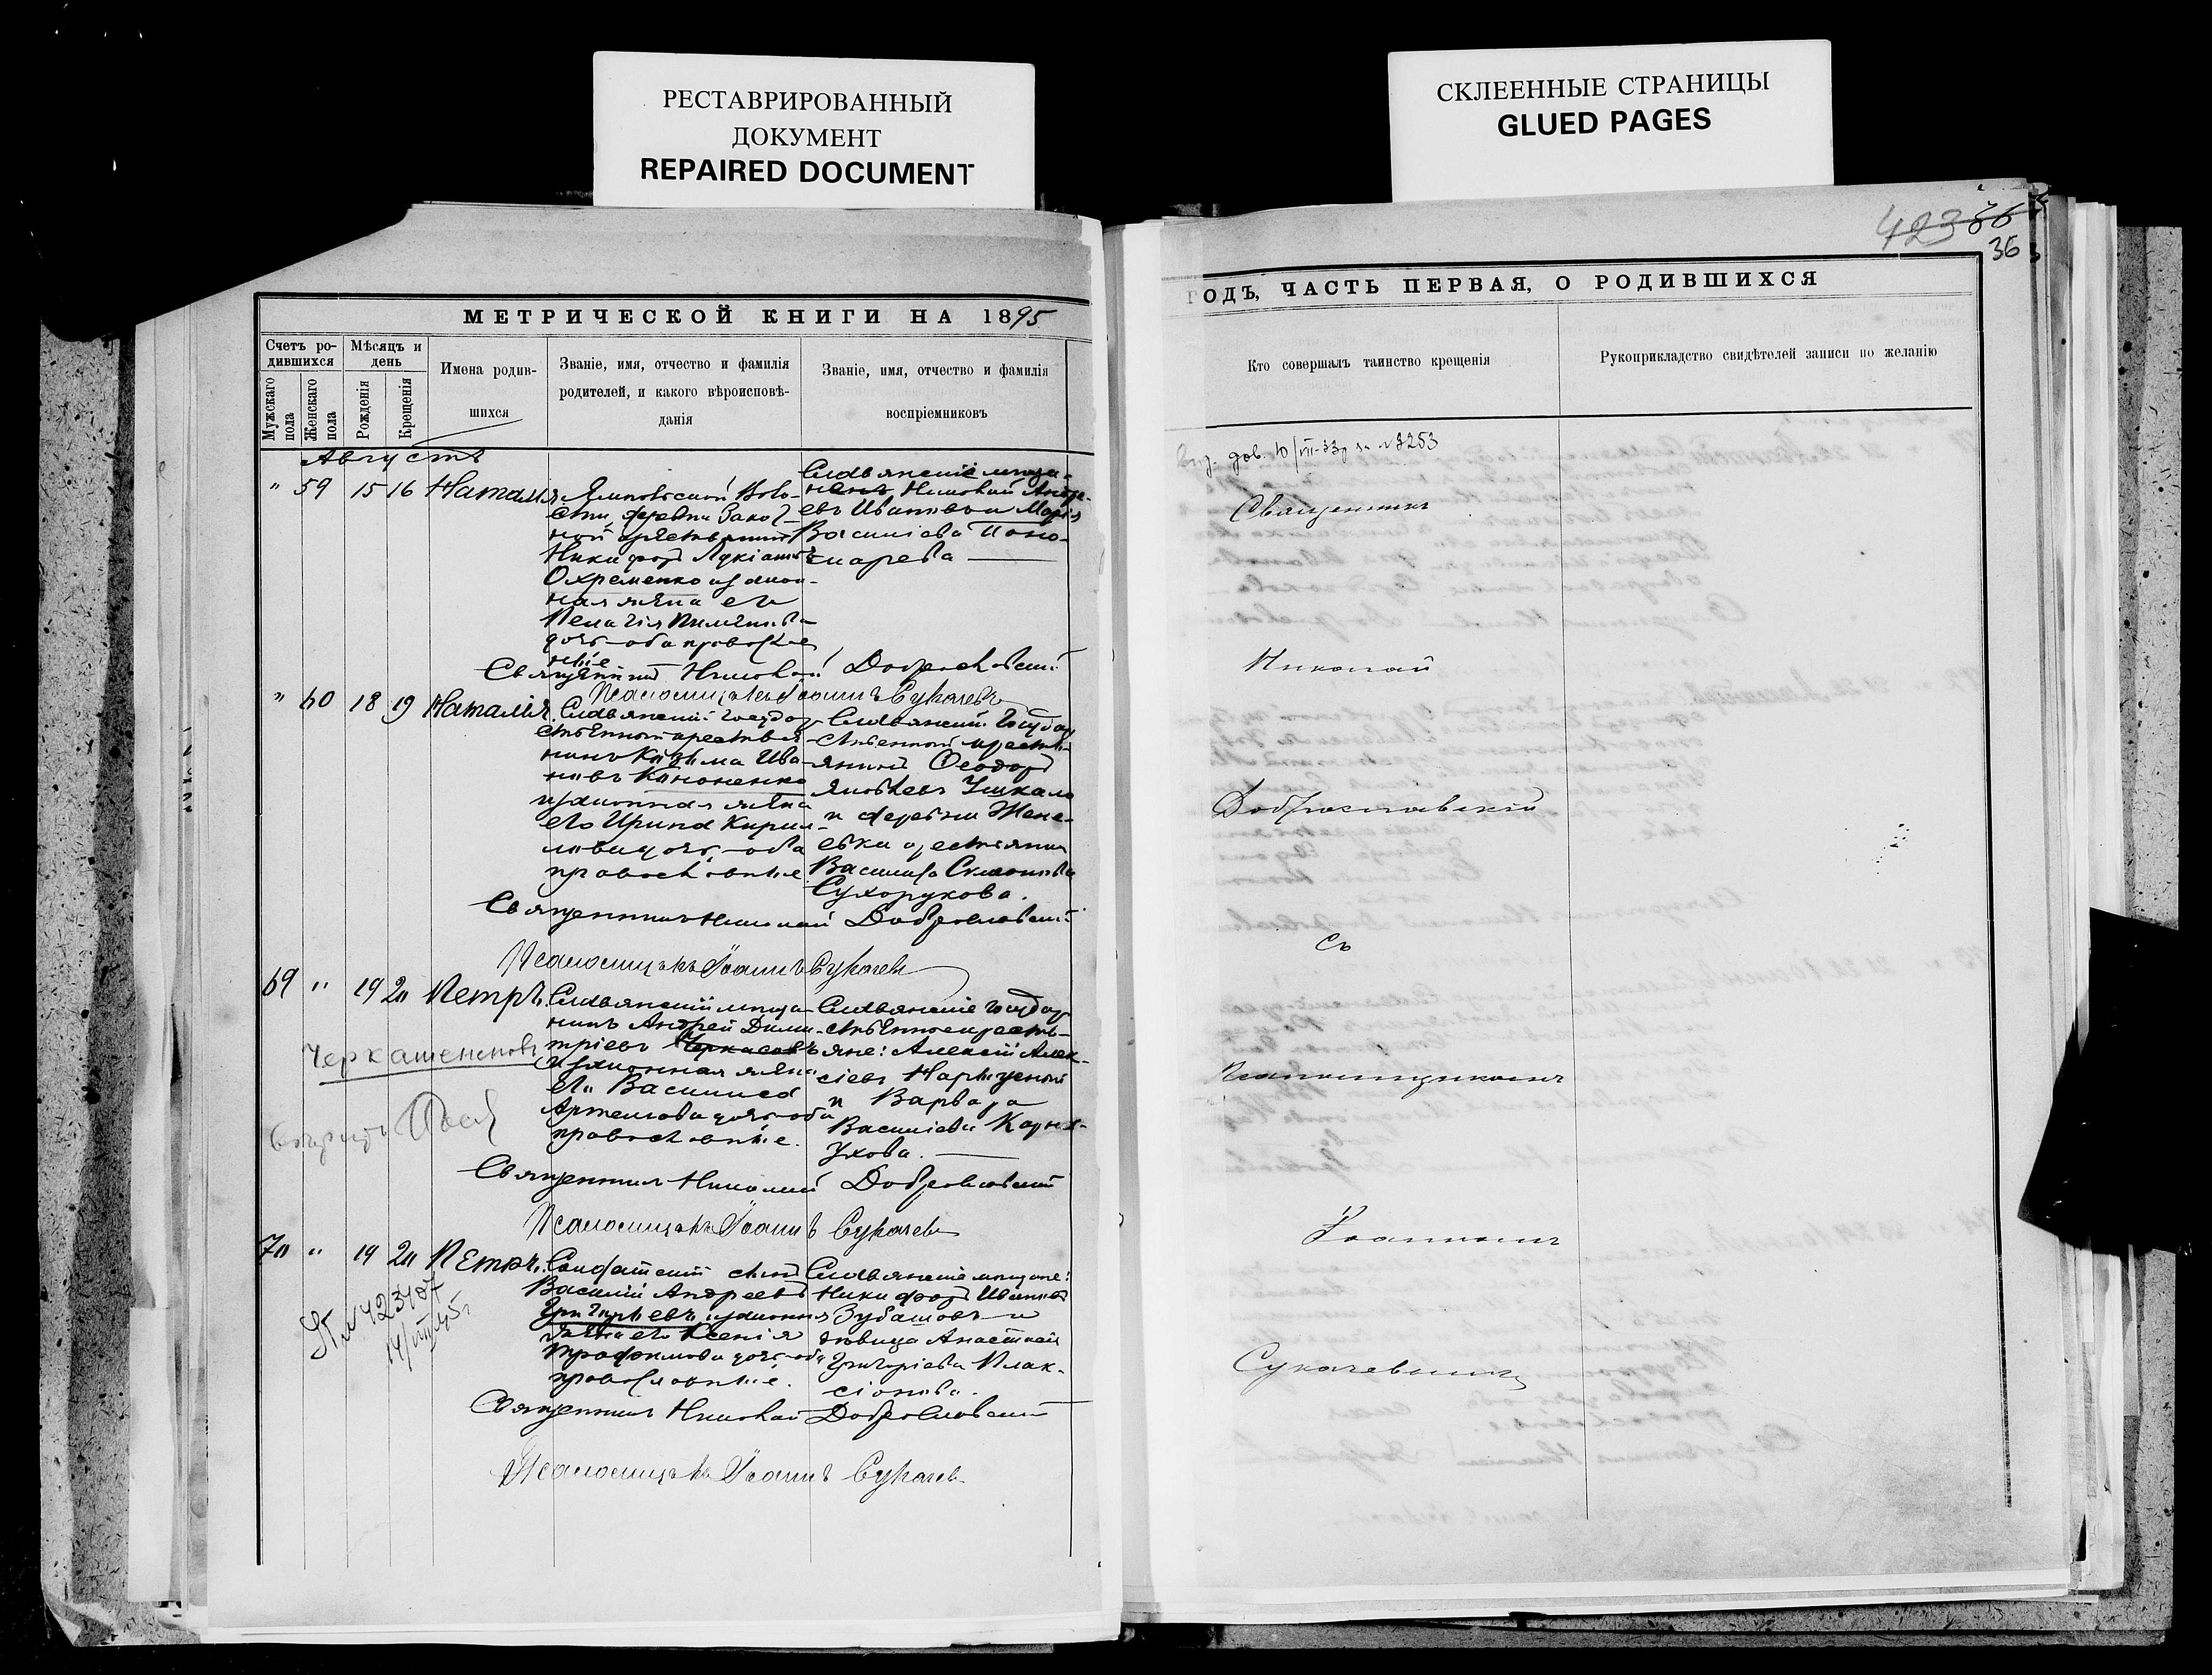 РЕСТАВРИРОВАННЫЙ
ДОКУМЕНТ
REPAIRED DOCUMENT
СКЛЕЕННЫЕ СТРАНИЦЫ
GLUED PAGES
МЕТРИЧЕСКОЙ КНИГИ НА 1895
Счетъ ро-
дившихся
Мужскаго
пола
Женскаго
пола
Мѣсяцъ и
день
Рожденія
Крещенія
Имена родив-
шихся
Званіе, имя, отчество и фамилія
родителей, и какого вѣроисповѣ-
данія
Званіе, имя, отчество и фамилія
воспріемниковъ
Августъ
" 59 15 16 Наталія
Ямповской Воло-
сти деревни Закот-
ной крестьянинъ
Никифоръ Лукіановъ
Охременко и закон-
ная жена его
Пелагія
дочь - оба православ-
ные
Славянскіе мѣща-
нинъ Николай Андре-
евъ Ивановъ и Марія
Василіева Поно-
марева
Священникъ Николай Доброславскій
Псаломщикъ Іоаннъ Сукачевъ
" 60 18 19 Наталія
Славянскій государ-
ственный крестья-
нинъ Козьма Ива-
новъ Кононенко
и законная жена
его Ирина Кирил-
лова дочь - оба
православные
Славянскій государ-
ственный кресть-
янинъ Феодоръ
Яковлевъ Ушкало
и деревни
крестьянка
Василиса
Сухорукова.
Священникъ Николай Доброславскій
Псаломщикъ Іоаннъ Сукачевъ
69 " 19 20 Петръ.
Славянскій мѣща-
нинъ Андрей Дими-
тріевъ Черкасовъ
и законная жена
его Василиса
Артемова дочь - оба
православные.
Черкашениновъ
Славянскіе государ-
ственные кресть-
яне: Алексій Алек-
сіевъ Нарѣжный
и Варвара
Василіева Карна-
ухова.
Священникъ Николай Доброславскій
Псаломщикъ Іоаннъ Сукачевъ
70 " 19 20 Петръ.
сынъ
Василій Андреевъ
Григорьевъ и законная
жена его Ксенія
Трофимова дочь - оба
православные.
Славянскіе мѣщане:
Никифоръ Ивановъ
Зубашовъ и
дѣвица Анастасія
Григоріева Плак-
сіонова.
Священникъ Николай Доброславскій
Псаломщикъ Іоаннъ Сукачевъ
423 36
36
ГОДЪ, ЧАСТЬ ПЕРВАЯ, О РОДИВШИХСЯ
Кто совершалъ таинство крещенія
Рукоприкладство свидѣтелей записи по желанію
Священникъ
Николай
Доброславскій
съ
Псаломщикомъ
Іоанномъ
Сукачевымъ